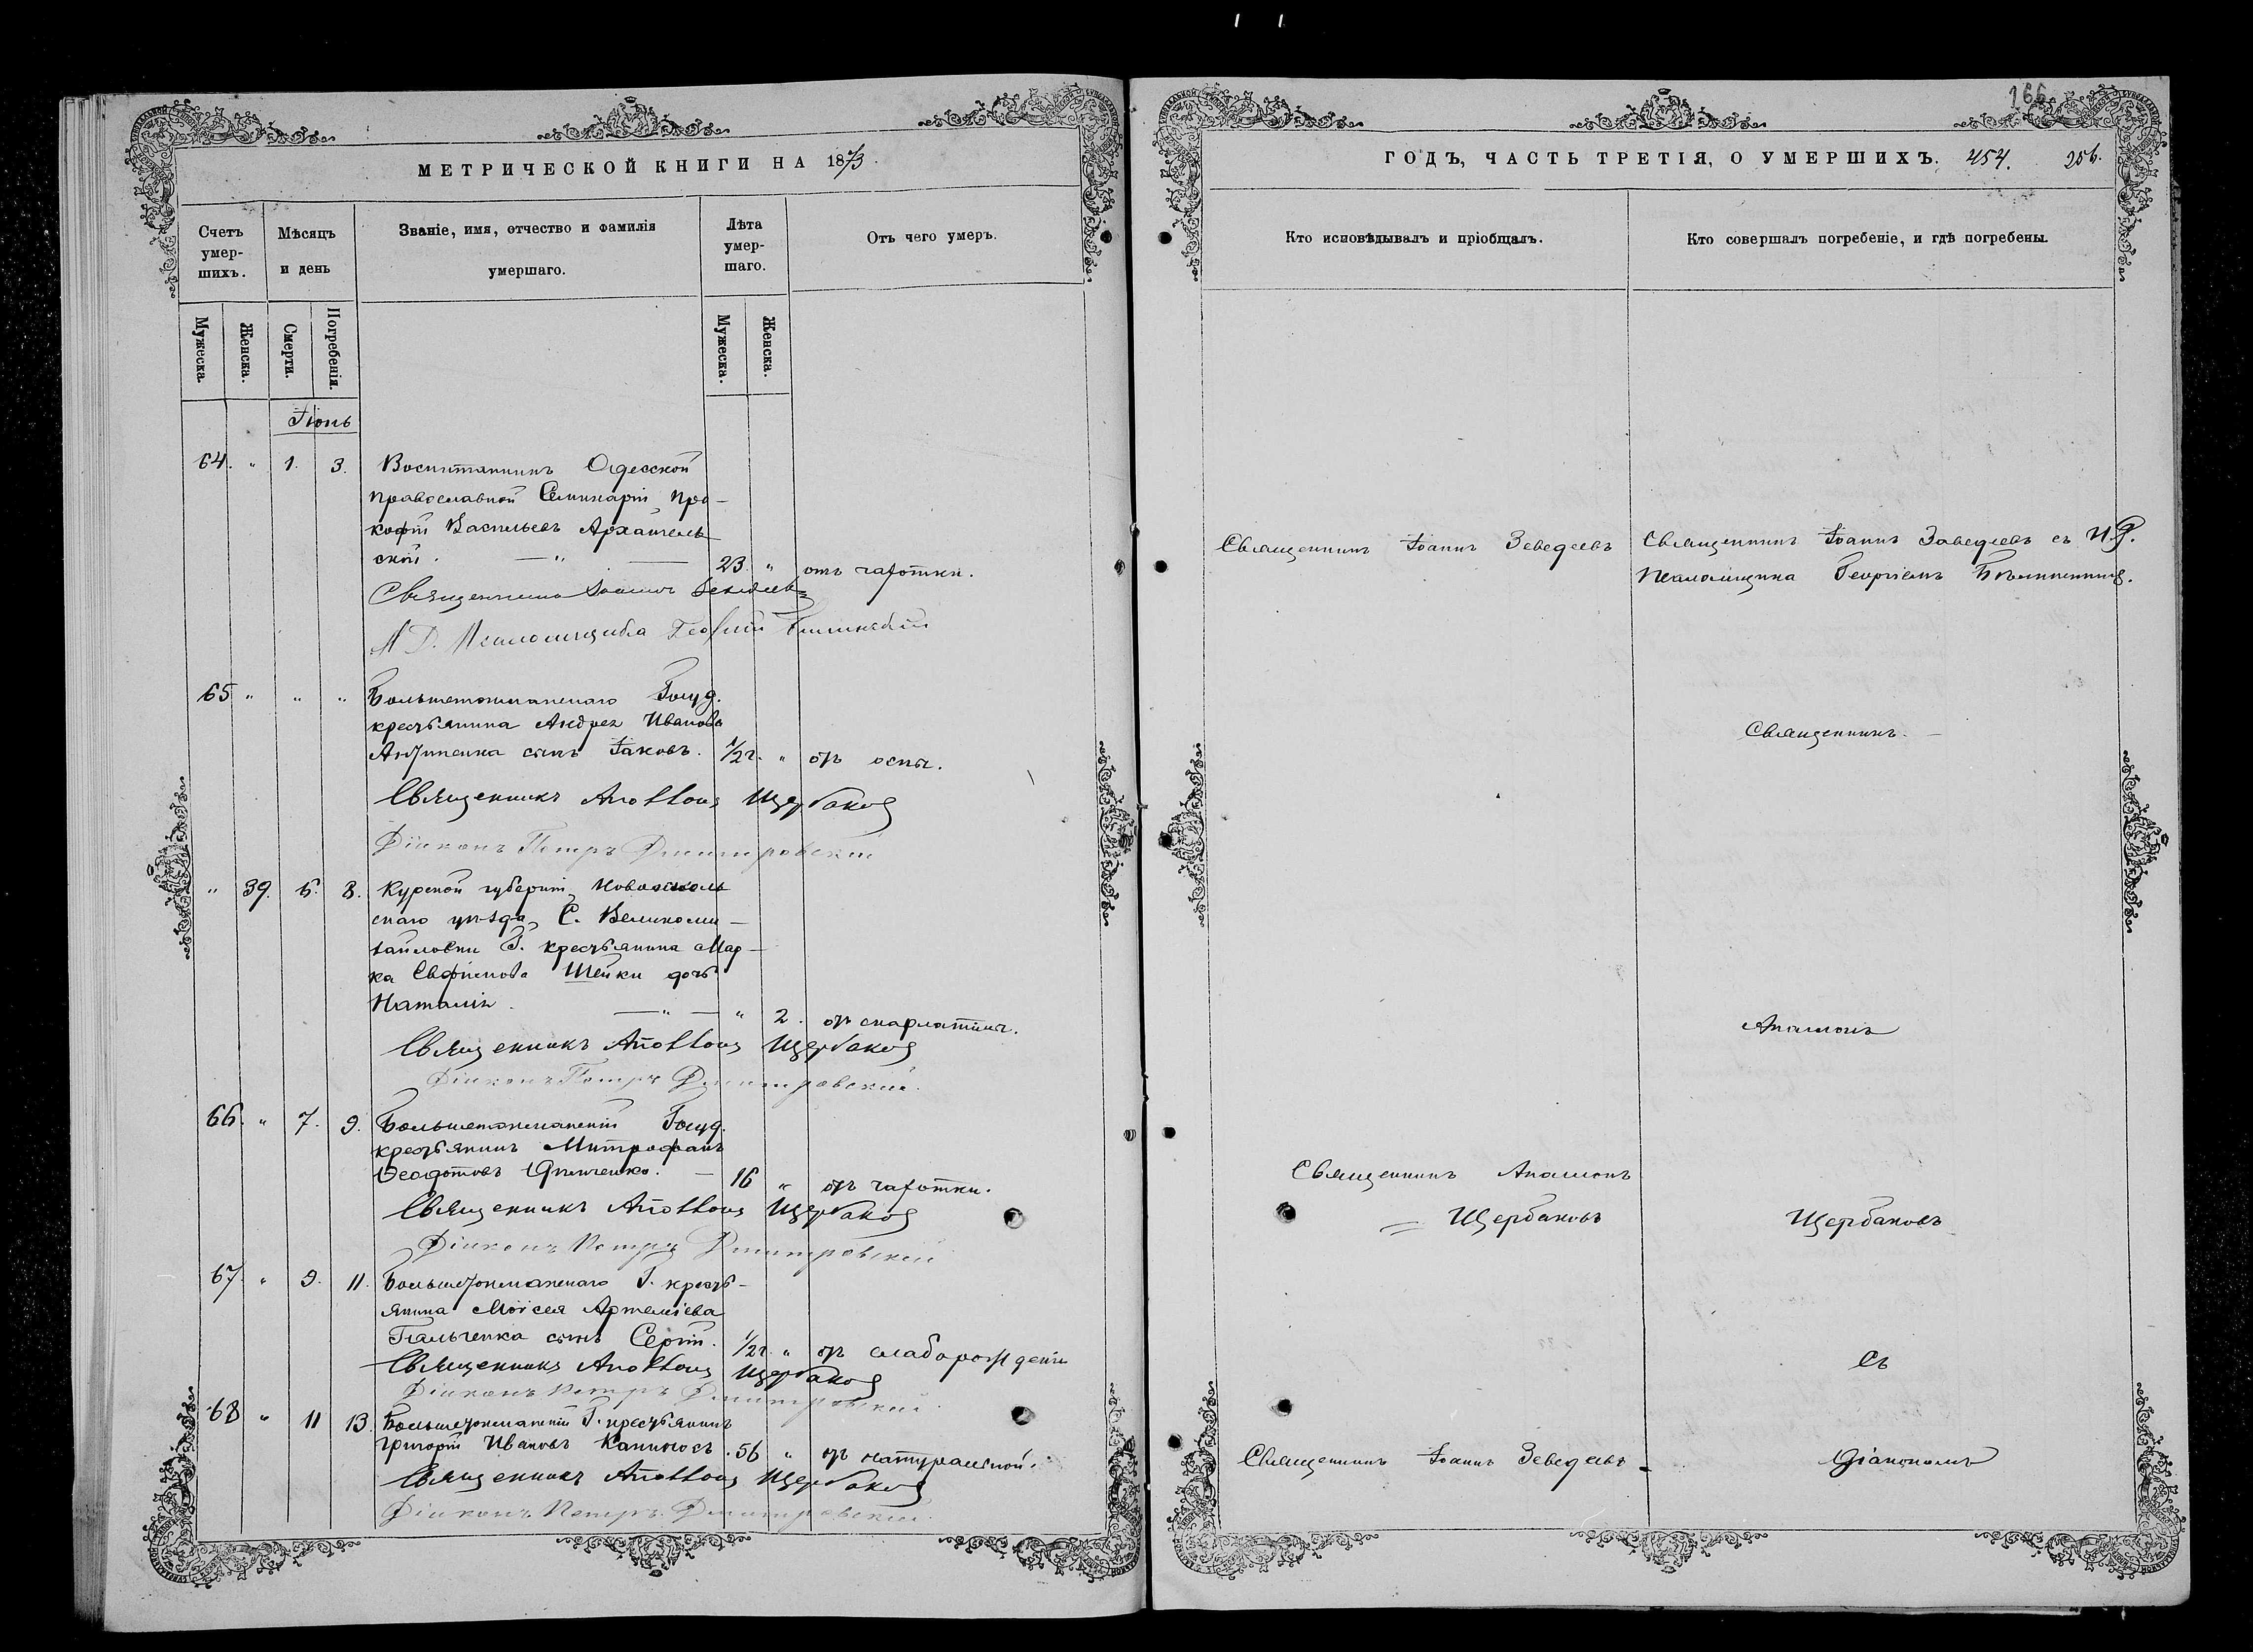 МЕТРИЧЕСКОЙ КНИГИ НА 1873
Счетъ умер-шихъ.
Мѣсяцъ и день
Званіе, имя, отчество и фамилія умершаго.
Лѣта умер-шаго.
Отъ чего умеръ.
Мужеска.
Женска.
Смерти.
Погребенія.
Мужеска.
Женска.
Іюнь
64. " 1. 3. Воспитанникъ Одесской
православной Семинаріи Про-
кофій Васильевъ Архангель
скій. — " — 23. " отъ чахотки.
Священникъ Іоаннъ Зеведеевъ
И. Д. Псаломщика Георгій
65 " " " Большетокмакскаго Госуд.
крестьянина Андрея Иванова
сынъ Іаковъ. 1/2 г. " отъ оспы.
Священникъ Аполлонъ Щербаковъ
Діаконъ Петръ Дмитровскій
" 39. 6. 8. Курской губерніи Новооскольскаго уѣзда, С. Великоми-
хайловки Г. крестьянина Мар-
ка Евфимова Шейки дочь
Наталія. — " — " 2. отъ скарлатины.
Священникъ Аполлонъ Щербаковъ
Діаконъ Петръ Дмитровскій.
66. " 7. 9. Большетокмакскій Госуд.
крестьянинъ Митрофанъ
Ѳеодотовъ — 16 " отъ чахотки.
Священникъ Аполлонъ Щербаковъ
Діаконъ Петръ Дмитровскій
67. " 9. 11. Большетокмакскаго Г. кресть-
янина Моісея Артеміева
Пальченка сынъ Сергій. 1/2 г. " отъ слаборожденія
Священникъ Аполлонъ Щербаковъ
Діаконъ Петръ Дмитровскій.
68 " 11 13. Большетокмакскій Г. крестьянинъ
Григорій Ивановъ . 56 " отъ натуральной.
Священникъ Аполлонъ Щербаковъ
Діаконъ Петръ Дмитровскій.
166
ГОДЪ, ЧАСТЬ ТРЕТІЯ, О УМЕРШИХЪ. 454. 256.
Кто исповѣдывалъ и пріобщалъ.
Кто совершалъ погребеніе, и гдѣ погребены.
Священникъ Іоаннъ Зеведеевъ
Священникъ Іоаннъ Зеведеевъ съ И. Д.
Псаломщика Георгіемъ
Священникъ. —
Аполлонъ
Священникъ Аполлонъ
= Щербаковъ
Щербаковъ
Съ
Священникъ Іоаннъ Зеведеевъ
Діакономъ